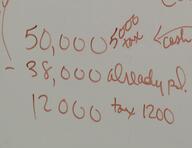 50,000 5000 tax ← cash
- 38,000 already pd.
12000 tax 1200